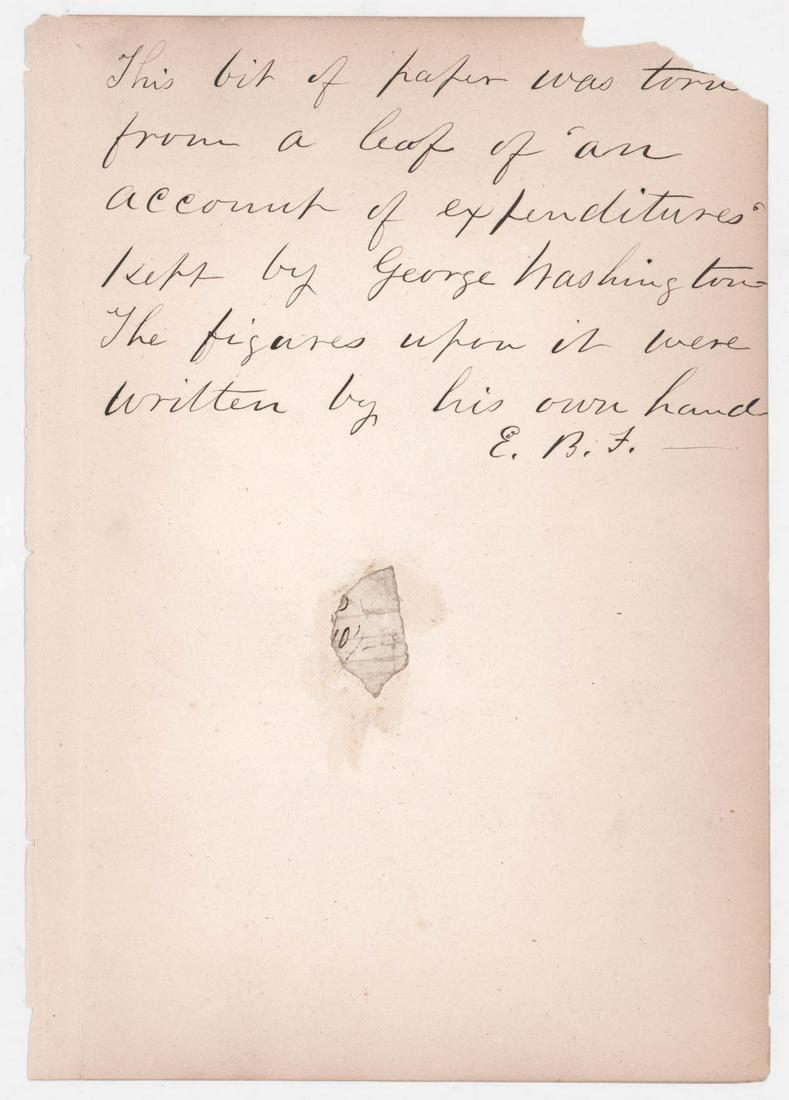 This bit of paper was torn
from a leaf of "an
account of expenditures"
kept by George Washington
The figures upon it were
written by his own hand
E. B. F. —
10